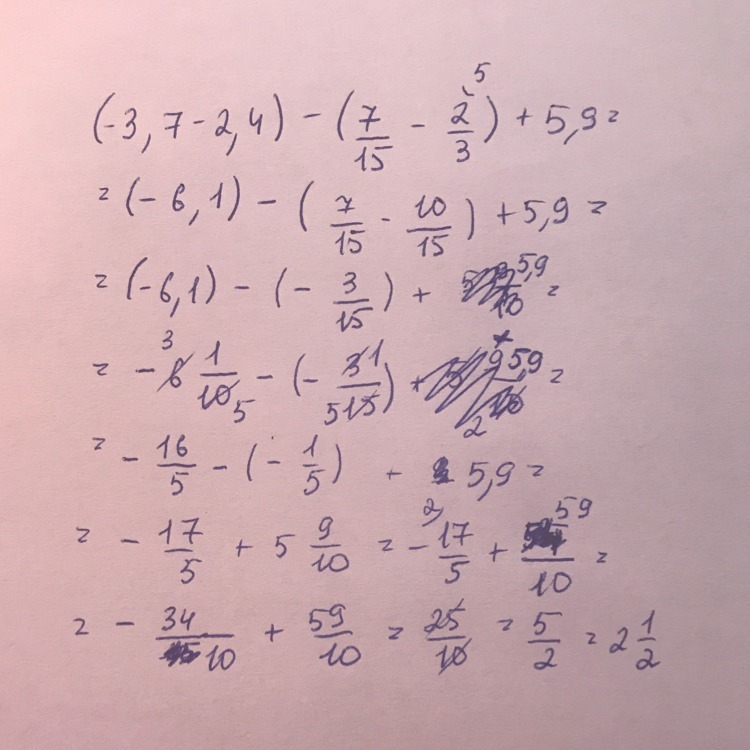 (-3,7-2,4) - (7/15 - 2/3) + 5,9 =
5
= (-6,1) - (7/15 - 10/15) + 5,9 =
= (-6,1) - (- 3/15) + 5,9 =
= - 6 1/10 - (- 3/15) + 5,9 =
3 5 1 5 2
= - 16/5 - (- 1/5) + 5,9 =
= - 17/5 + 5 9/10 = - 17/5 + 59/10 =
2
= - 34/10 + 59/10 = 25/10 = 5/2 = 2 1/2